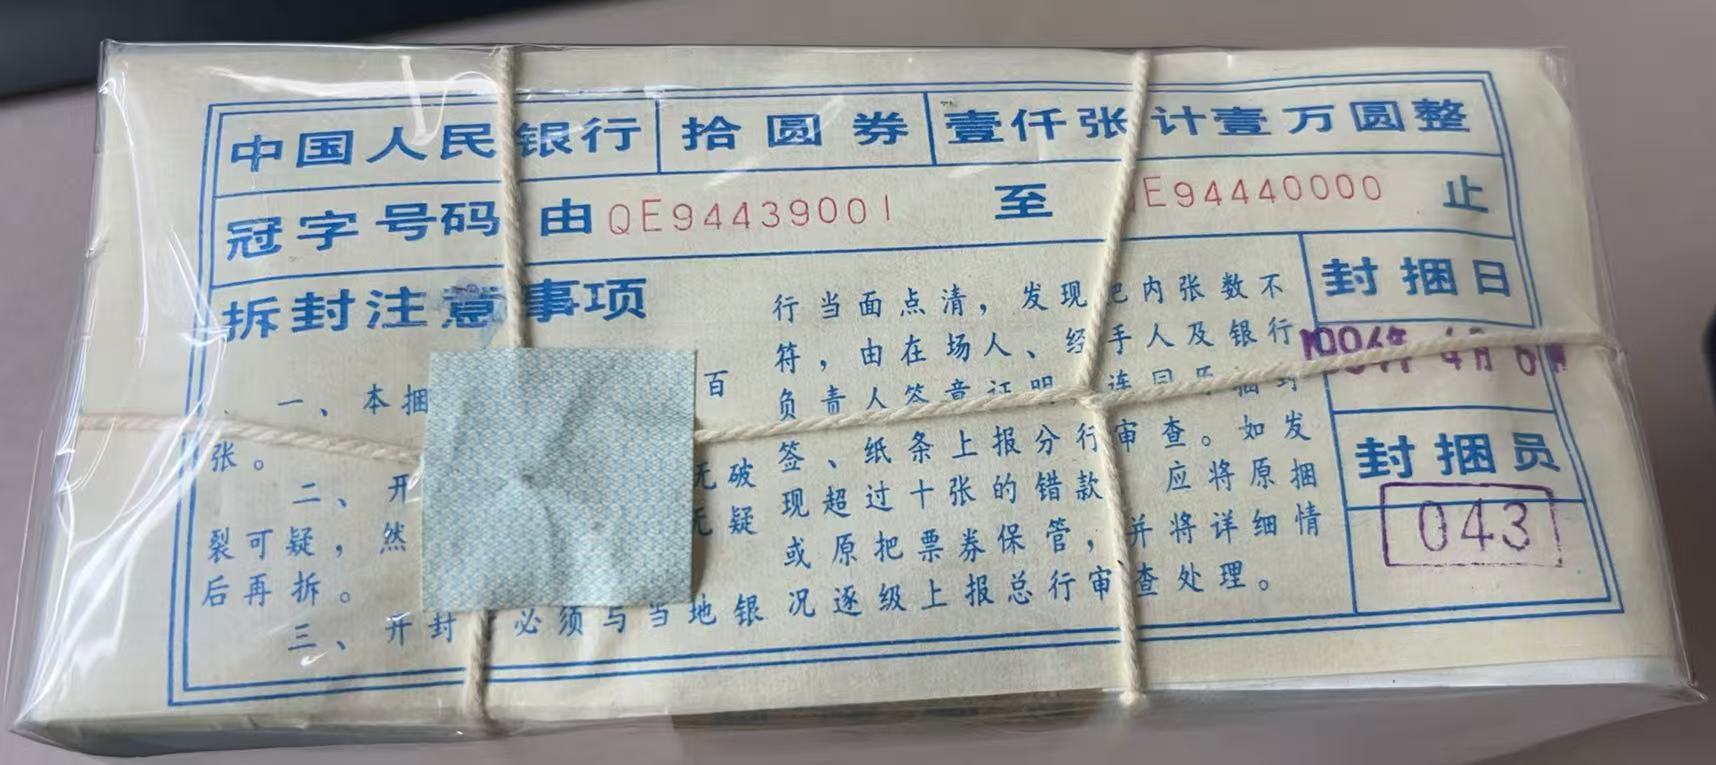 中国人民银行 拾圆券 壹仟张计壹万圆整
冠字号码 由QE94439001 至 E94440000 止
拆封注意事项
一、本捆 百
张。
二、开 无破
裂可疑，然 无疑
后再拆。
三、开封 必须与当地银
行当面点清，发现把内张数不
符，由在场人、经手人及银行
负责人签章证明 连同原捆封
签、纸条上报分行审查。如发
现超过十张的错款 应将原捆
或原把票券保管，并将详细情
况逐级上报总行审查处理。
封捆日
4月6
封捆员
043